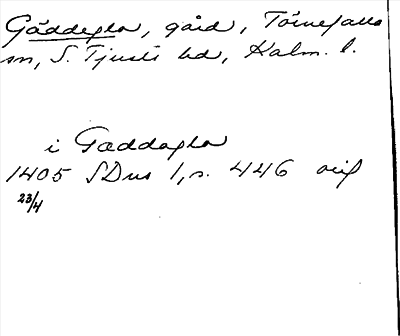 Gäddeglo, gård, Törnefalla
sn, S. Tjusts hd, Kalm. l.
i Gæddaglo
1405 SDns 1, s. 446 orig
23/4